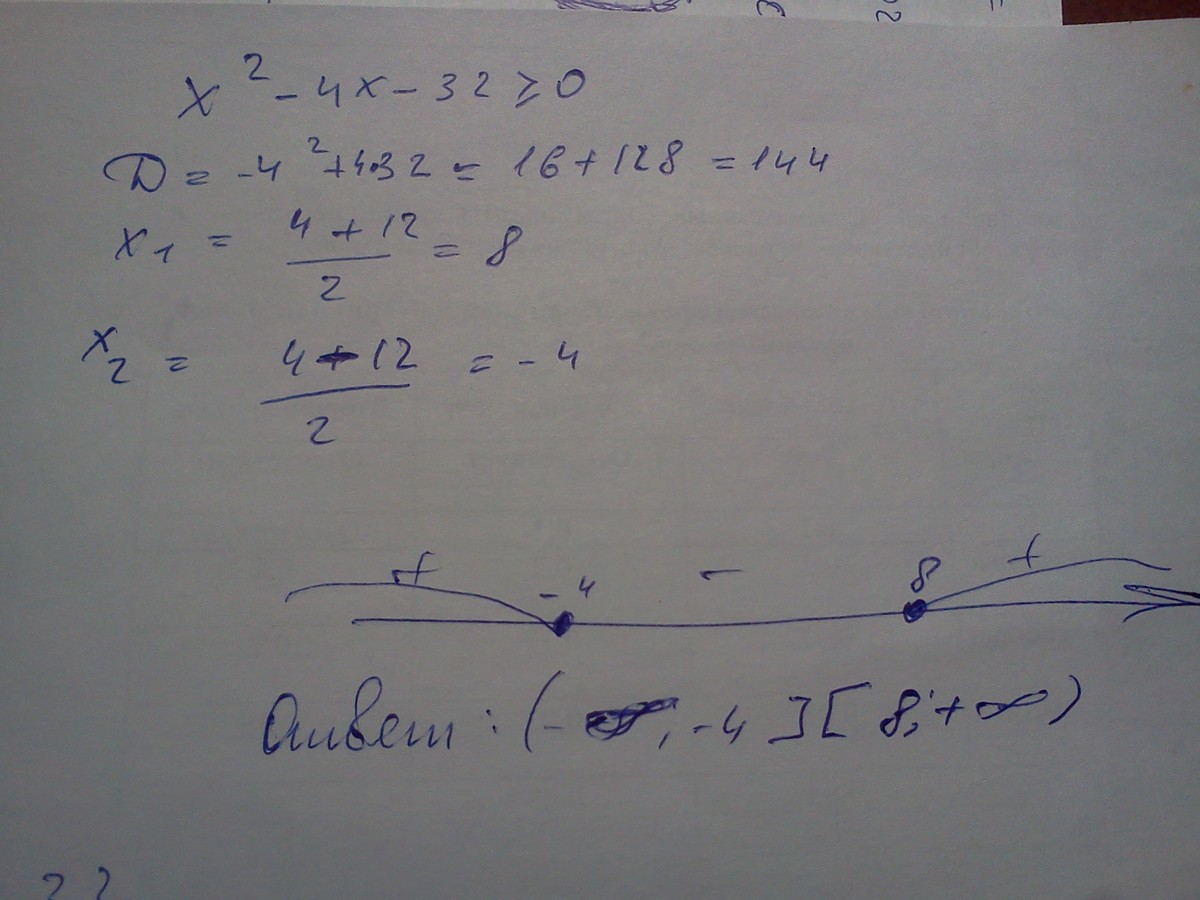 x² - 4x - 32 ≥ 0
D = -4² + 4·32 = 16 + 128 = 144
x₁ = (4 + 12)/2 = 8
x₂ = (4 - 12)/2 = -4
+ -4 - 8 +
Ответ: (-∞; -4][8; +∞)